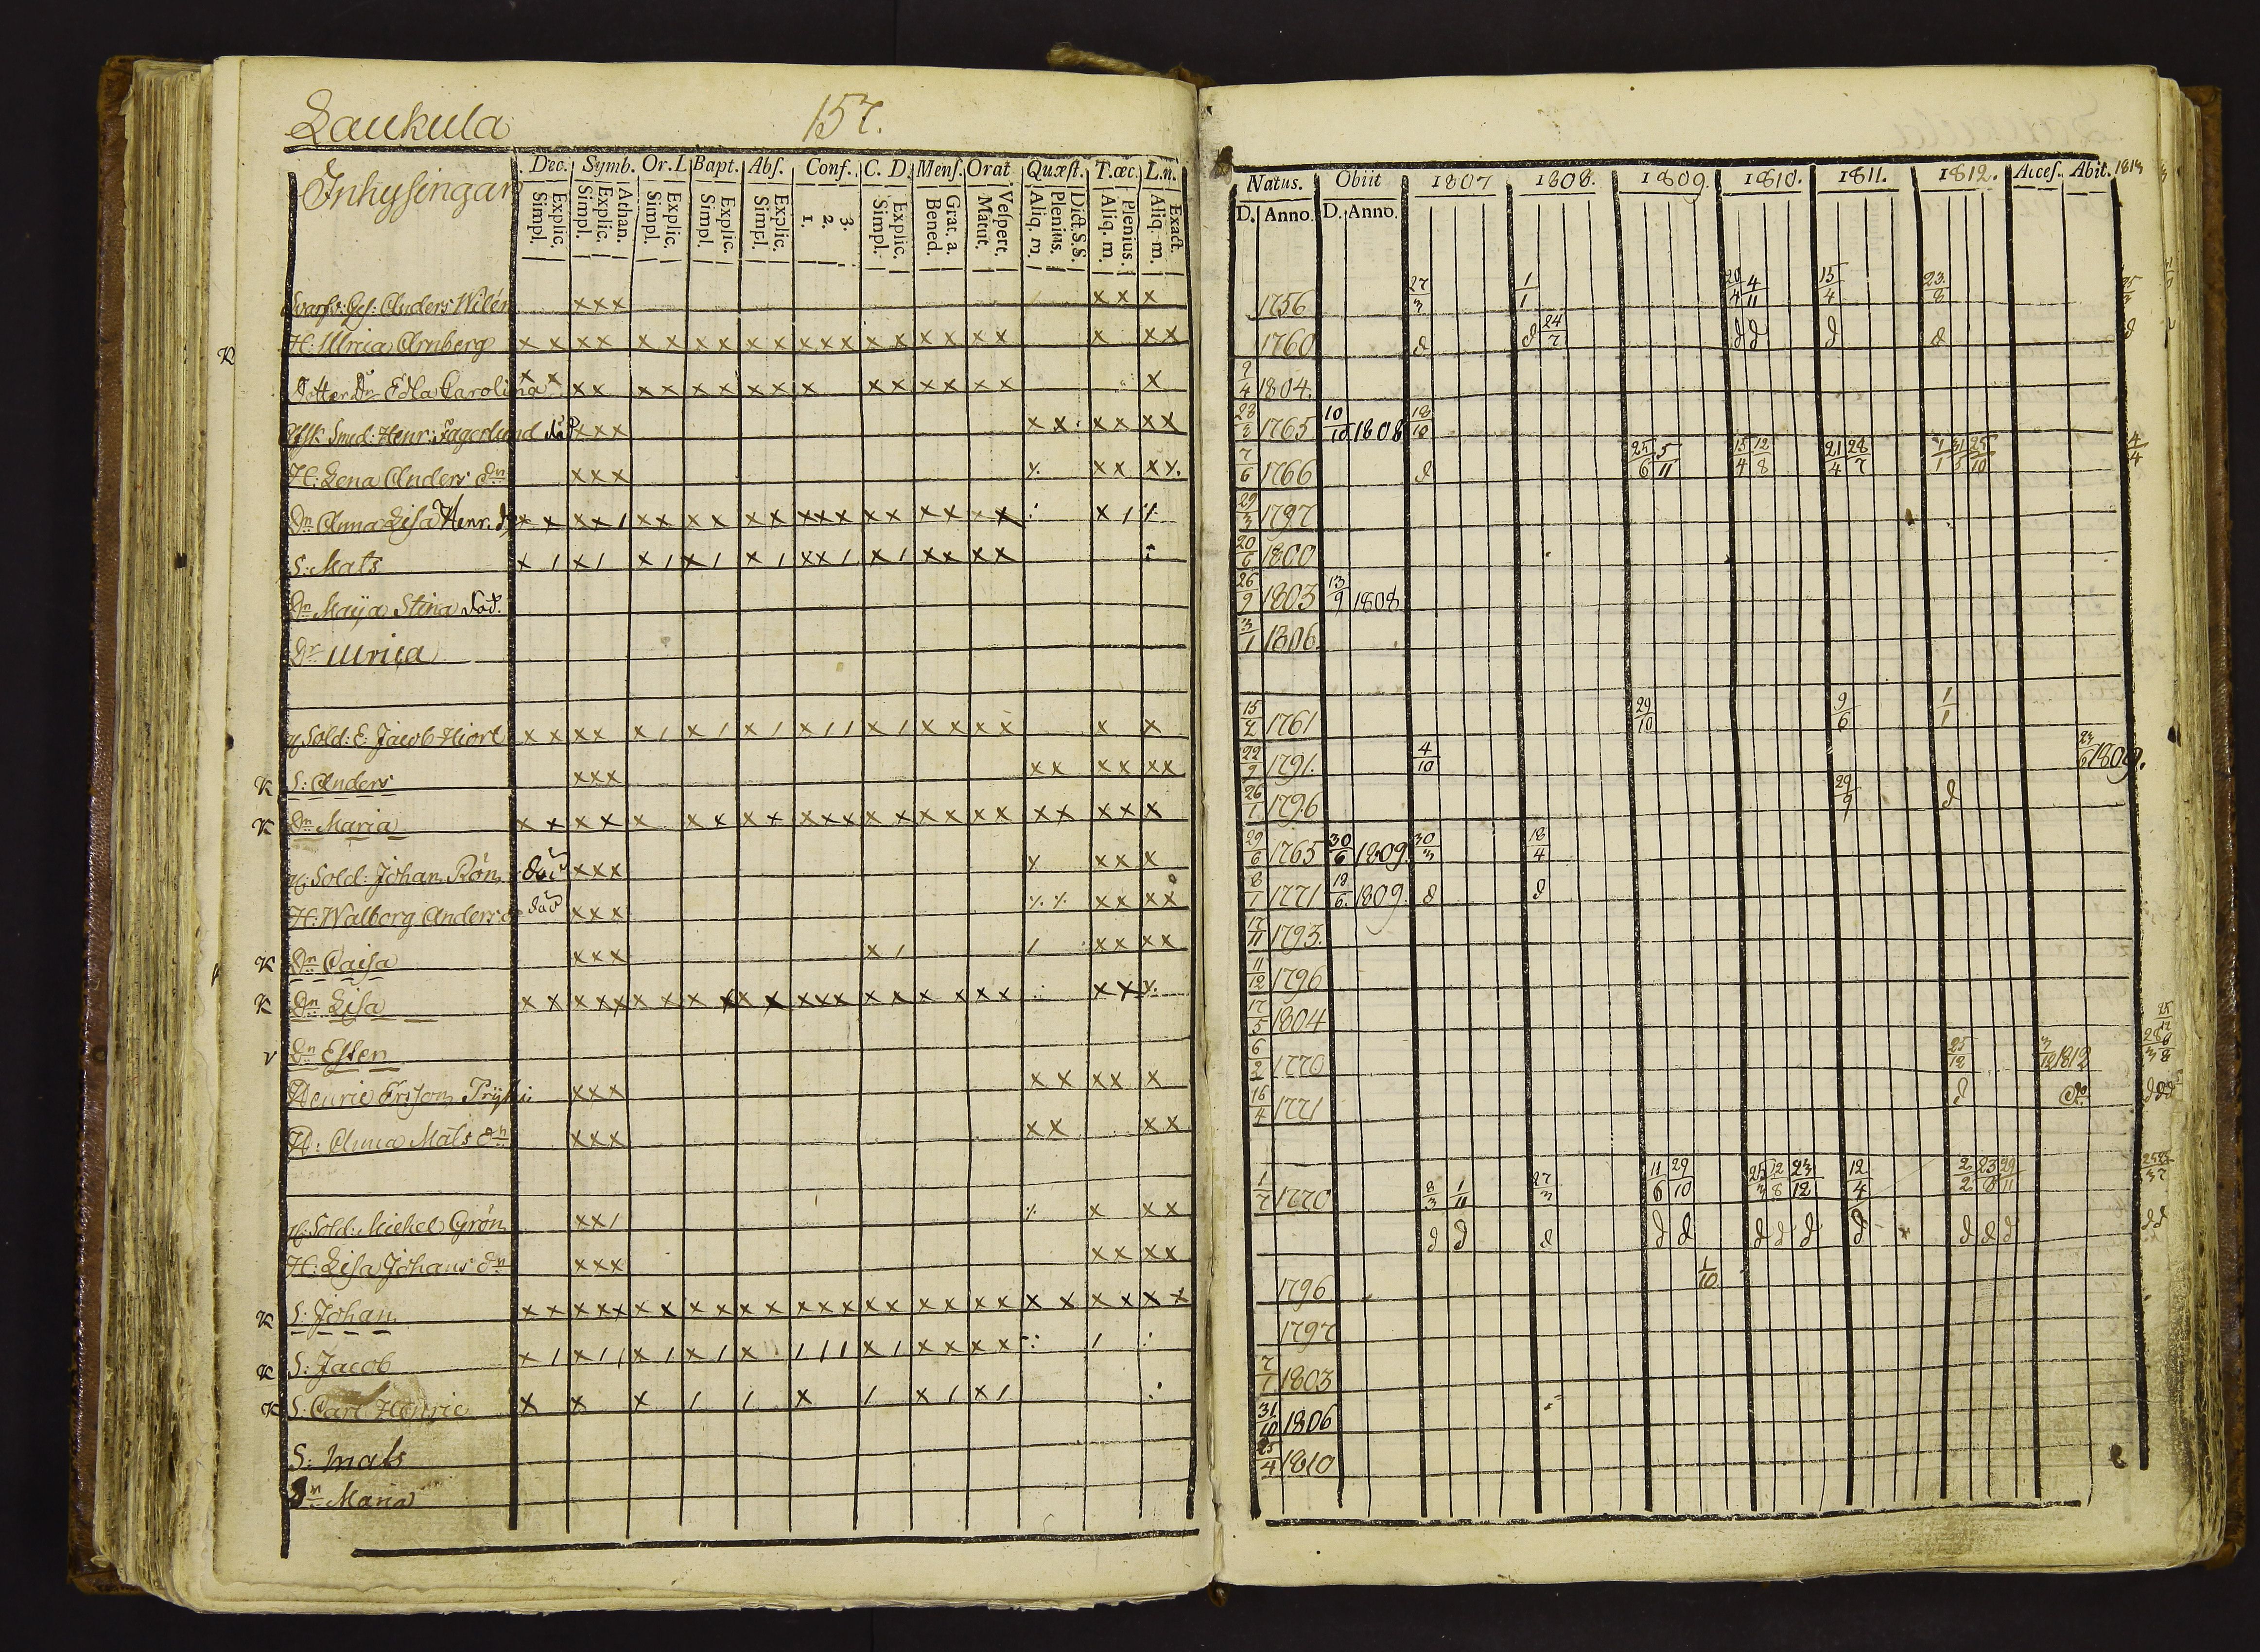 Laukula 157.
Inhysingar
Dec. Symb. Or. L Bapt. Abs. Conf. C. D. Mens. Orat Quæst. T.œc. L.n.
Simpl. Explic. Simpl. Explic. Athan. Simpl. Explic. Simpl. Explic. Simpl. Explic. 1. 2. 3. Simpl. Explic. Bened. Grat. a. Matut. Vespert. Aliq. m. Plenius. Dict. S.S. Aliq. m. Plenius. Aliq. m. Exact.
Anders Wilén
H: Ulrica Arnberg
Dotter Dr Edla Carolina
Smed: Henr: Fagerlund död
H: Lena Anders dr
Dr Anna Lisa Henr. dr
S: Mats
Dr Maija Stina död.
Dr Ulrica
Sold: E. Jacob Hiort
K S: Anders
K Dr Maria
Sold: Johan Rön död
H: Walborg Anders död
K Dr Caisa
K Dr Lisa
Dr Ester
Henric Ersson
H: Anna Mats dr
Sold: Michel Grön
H: Lisa Johans dr
K S: Johan
K S: Jacob
K S: Carl Henric
S: Mats
Dr Maria
Natus. Obiit 1807 1808. 1809. 1810. 1811. 1812. Acces. Abit. 1813
D. Anno. D. Anno.
1756 27/3 1/1 4/11 15/4 23/8
1760 d d 24/7 d d d d
1804.
28/8 1765 10/10 1808 18/10
7/6 1766 d 25/6 5/11 15/4 12/8 21/4 28/7 1/1 31/5 25/10 4/4
29/3 1797
20/6 1800
26/9 1803 13/9 1808
3/1 1806
1761 29/10 9/6 1/1
22/9 1791. 4/10 23/6 1809.
26/1 1796 29/9 d
29/6 1765 30/6 1809. 30/3 18/4
8/1 1771 12/6 1809. d d
17/11 1793.
11/12 1796
17/5 1804
6/2 1770 25/12 3/12 1812
16/4 1771 d do
1/7 1770 8/3 1/11 27/3 11/6 29/10 25/3 12/8 23/12 12/4 2/2 23/8 29/11
d d d d d d d d d d d d
1796 1/10
1797
7/1 1803
31/10 1806
25/4 1810